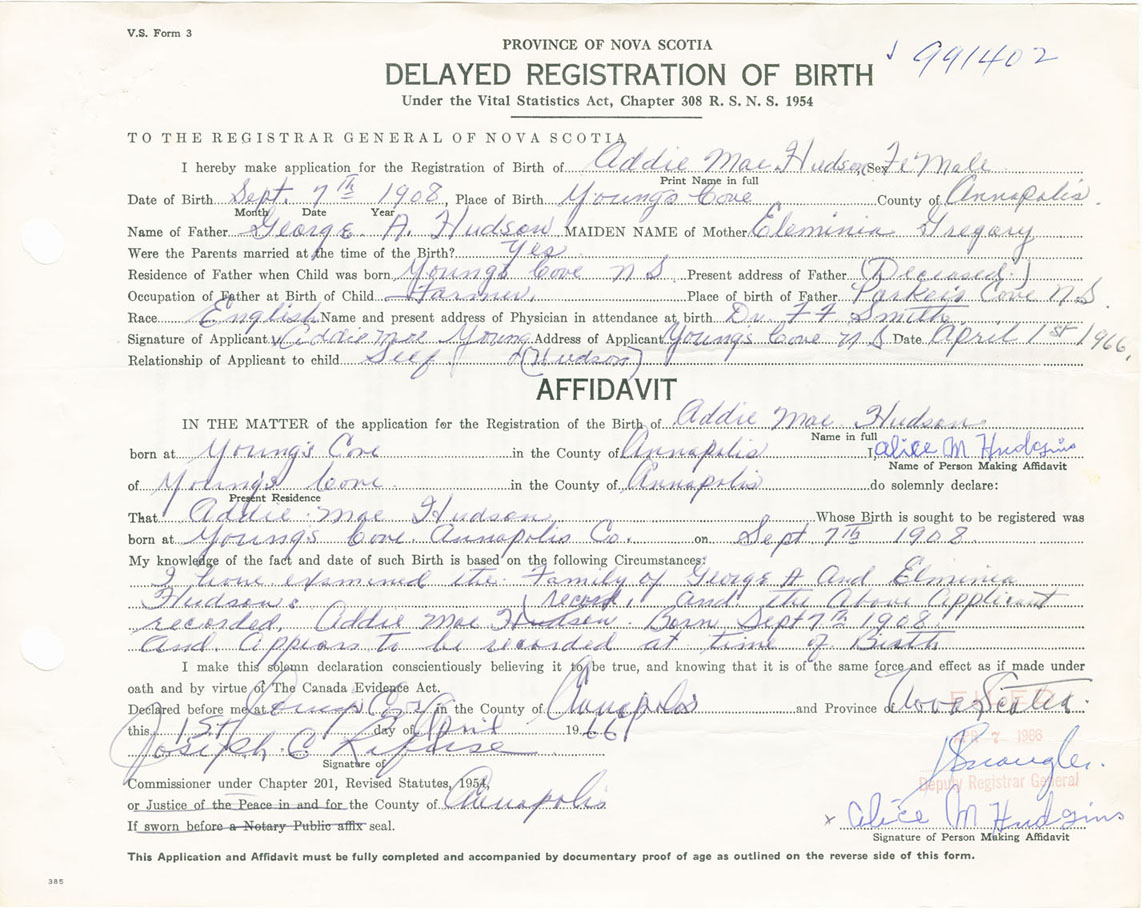 V.S. Form 3
PROVINCE OF NOVA SCOTIA
991402
DELAYED REGISTRATION OF BIRTH
Under the Vital Statistics Act, Chapter 308 R. S. N. S. 1954
TO THE REGISTRAR GENERAL OF NOVA SCOTIA
I hereby make application for the Registration of Birth of Addie Mae Hudson Sex Fe Male
Print Name in full
Date of Birth Sept. 7th 1908, Place of Birth Young's Cove County of Annapolis.
Month Date Year
Name of Father George A. Hudson MAIDEN NAME of Mother Eleminia Gregary
Were the Parents married at the time of the Birth? Yes
Residence of Father when Child was born Young's Cove N S Present address of Father (Deceased.)
Occupation of Father at Birth of Child Farmer. Place of birth of Father Parker's Cove N.S.
Race English Name and present address of Physician in attendance at birth Dr. F F Smith
Signature of Applicant Addie Mae Young Address of Applicant Young's Cove N S Date April 1st 1966.
Relationship of Applicant to child Self (Hudson)
AFFIDAVIT
IN THE MATTER of the application for the Registration of the Birth of Addie Mae Hudson
Name in full
born at Young's Cove in the County of Annapolis I, Alice M Hudgins
Name of Person Making Affidavit
of Young's Cove in the County of Annapolis do solemnly declare:
Present Residence
That Addie Mae Hudson Whose Birth is sought to be registered was
born at Young's Cove. Annapolis Co. on Sept 7th 1908
My knowledge of the fact and date of such Birth is based on the following Circumstances:
I have examined the Family of George A And Elminia
Hudson. record, And the Above Applicant
recorded, Addie Mae Hudson. Born Sept 7th 1908
And Appears to be recorded at time of Birth
I make this solemn declaration conscientiously believing it to be true, and knowing that it is of the same force and effect as if made under
oath and by virtue of The Canada Evidence Act.
Declared before me at in the County of Annapolis and Province of Nova Scotia.
this 1st day of April 1966
FILED
7 1966
Joseph C
Signature of
Deputy Registrar General
Commissioner under Chapter 201, Revised Statutes, 1954,
or Justice of the Peace in and for the County of Annapolis
x Alice M Hudgins
If sworn before a Notary Public affix seal.
Signature of Person Making Affidavit
This Application and Affidavit must be fully completed and accompanied by documentary proof of age as outlined on the reverse side of this form.
385